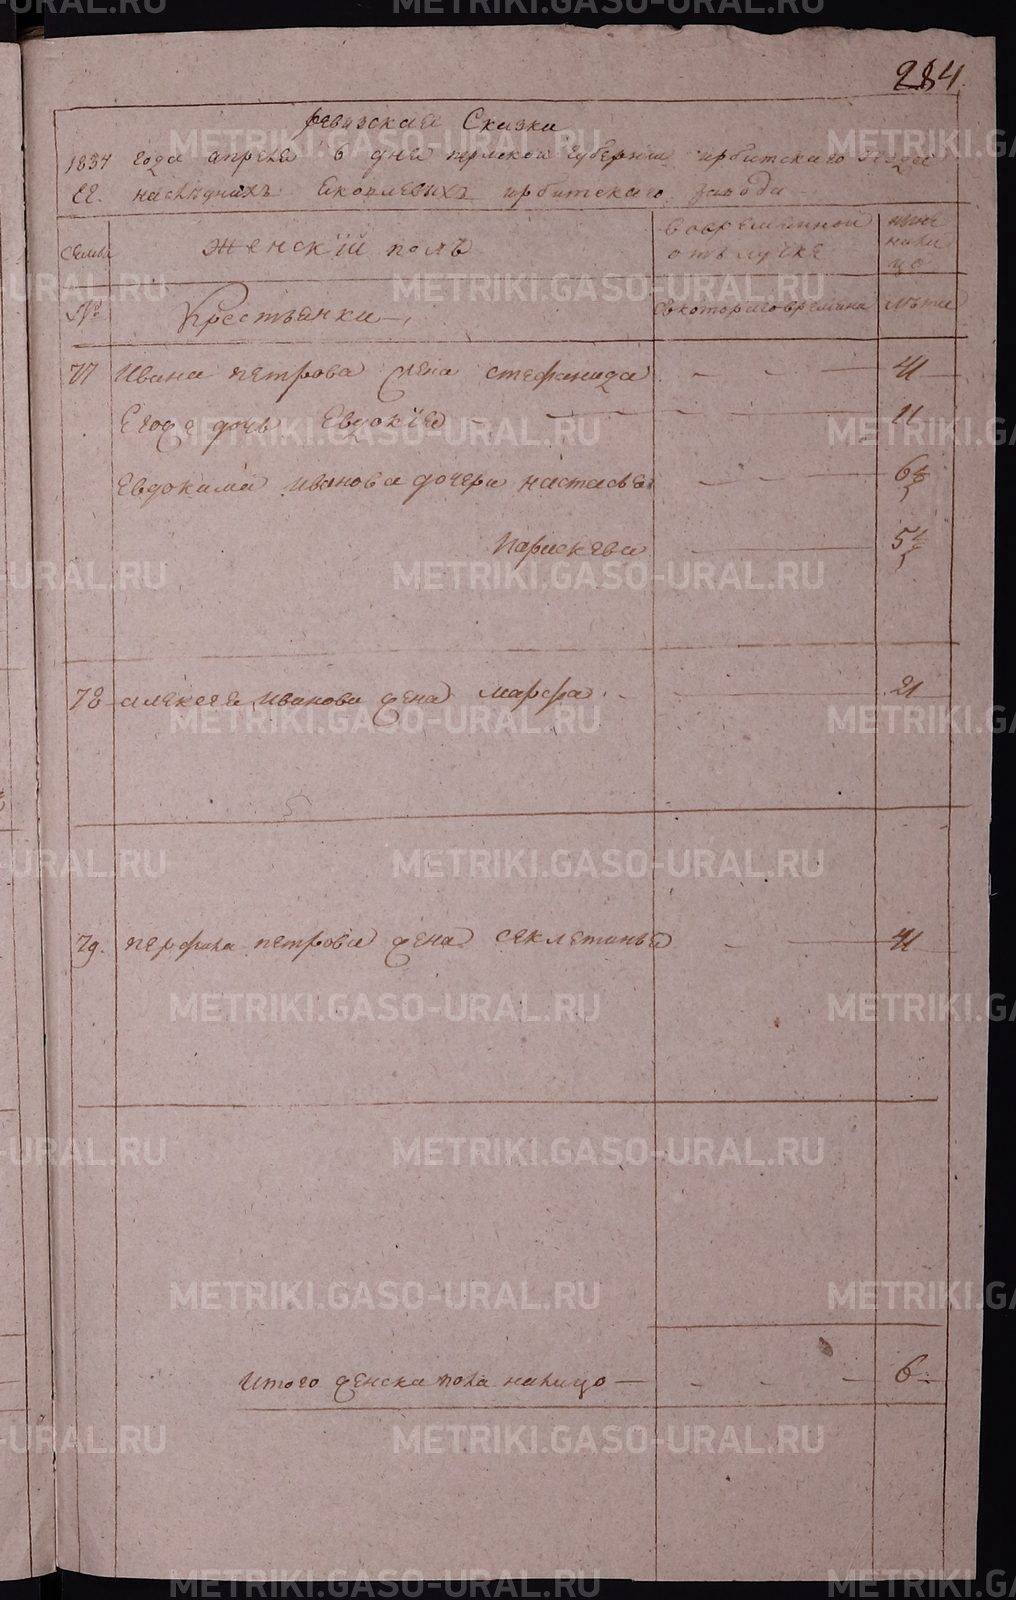 284.
ревизская Сказка
1834 года апреля 6 дня пермской губернии ирбитскаго уезда
наследниках Яковлевых ирбитскаго завода
семьи
Женскій полъ
во временной отълучке
ныне налицо
№
Крестьянки
съ котораго времяна
лѣты
77 Ивана петрова жена стефанида 41
Его же дочь Евдокіе 11
Евдокима иванова дочери настасья 6½
Парасковья 5½
78 алексея иванова жена марфа 21
79. перфила петрова жена секлетинья 41
Итого женска пола налицо 6
METRIKI.GASO-URAL.RU